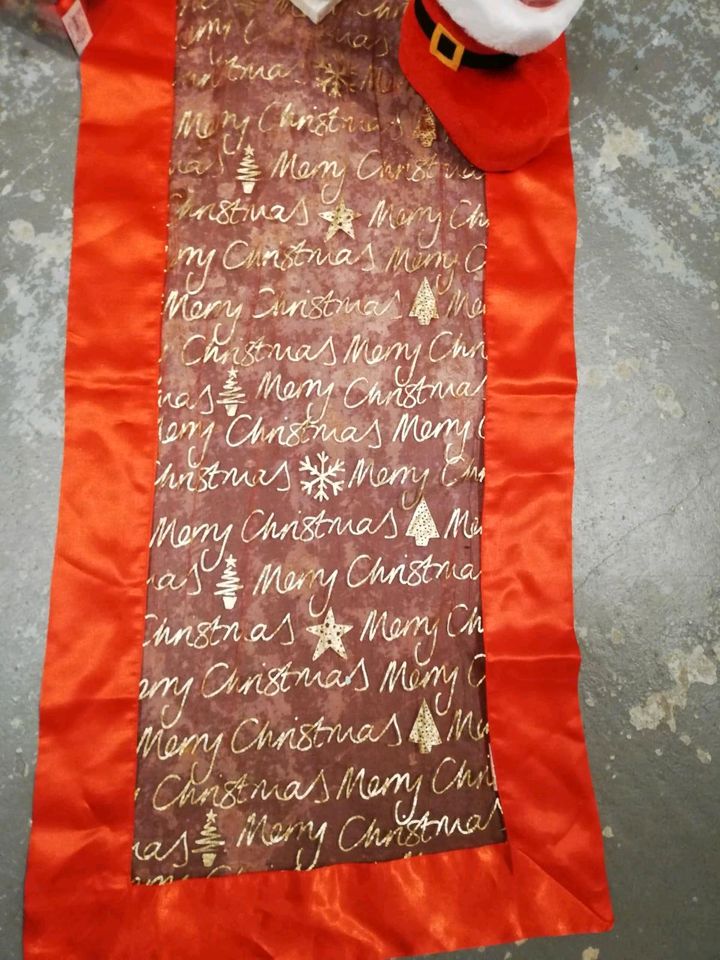 Chris
erry C as
istmas Me
Merry Christmas
as Merry Christmas
hristmas Merry Ch
erry Christmas Merry C
Merry Christmas Me
Christmas Merry Chri
as Merry Christmas
erry Christmas Merry C
hristmas Merry Ch
Merry Christmas Me
as Merry Christmas
Christmas Merry Ch
erry Christmas Merry C
Merry Christmas Me
Christmas Merry Chri
as Merry Christmas